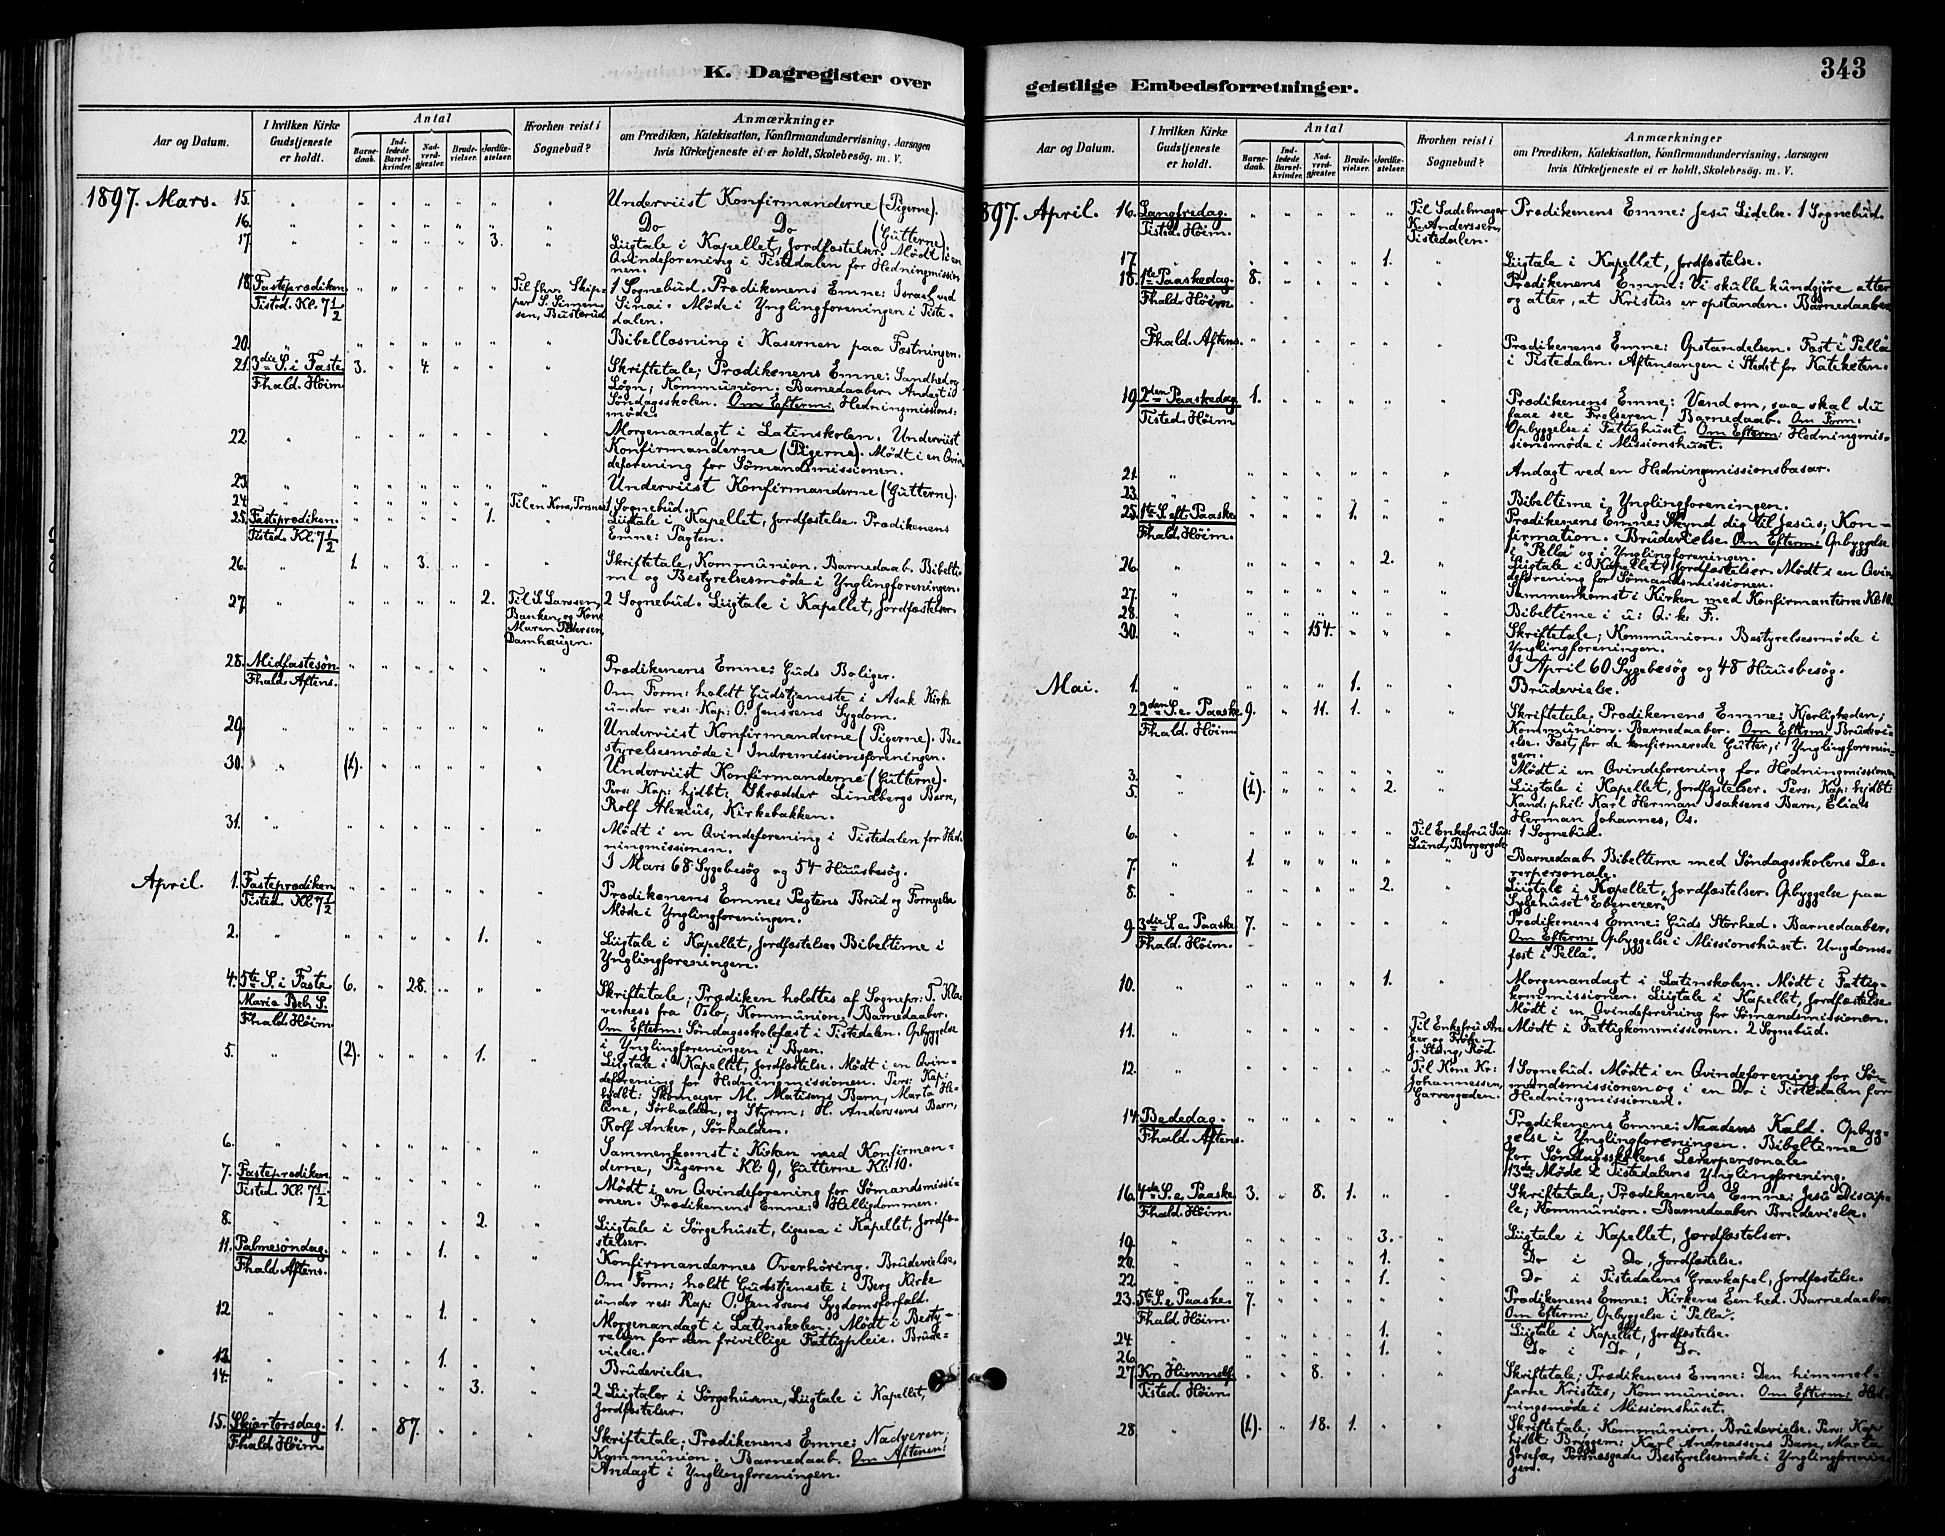 K. Dagregister over
Aar og Datum.
I hvilken Kirke Gudstjeneste er holdt.
Antal
Barnedaab.
Indledede Barselkvinder.
Nadverdgjæster.
Brudevielser.
Jordfæstelser.
Hvorhen reist i Sognebud?
Anmærkninger
om Prædiken, Katekisation, Konfirmandundervisning, Aarsagen
hvis Kirketjeneste ei er holdt, Skolebesøg. m. V.
1897. Mars. 15. Underviist Konfirmanderne (Pigerne).
16. Do Do (Gutterne).
17. 3. Liigtale i Kapellet, Jordfæstelser. Mødt i en
Qvindeforening i Tistedalen for Hedningmission
nen.
18. Fasteprædiken Til fhv. Skip- 1 Sognebud. Prædikenens Emne: Israel ved
Tisted. Kl. 7½ per S. Simen- Sinai. Møde i Ynglingforeningen i Tiste-
sen, Busterud dalen.
20. Bibellæsning i Kasernen paa Fæstningen.
21. 3die S. i Faste 3. 4. Skriftetale; Prædikenens Emne: Sandhed og
Fhald. Høim. Løgn; Kommunion. Barnedaaber. Andagt i
Søndagsskolen. Om Efterm: Hednigmissions:
møde.
22. Morgenandagt i Latinskolen. Underviist
Konfirmanderne (Pigerne). Mødt i en Qvin-
deforening for Sømandsmissionen.
23. Underviist Konfirmanderne (Gutterne).
24. Til en Kone, Torsnæs 1 Sognebud.
25. Fasteprædiken. 1. Liigtale i Kapellet, Jordfæstelse. Prædikenens
Tisted. Kl. 7½ Emne: Pagten.
26. 1. 3. Skriftetale, Kommunion. Barnedaab. Bibelti-
me og Bestyrelsesmøde i Ynglingforeningen.
27. 2. Til S. Larssen, 2 Sognebud. Liigtale i Kapellet, Jordfæstelser.
Banken, og Kone
Maren Pedersen,
Damhaugen.
28. Midfastesøn Prædikenens Emne: Guds Boliger.
Fhald. Aftens. Om Form: holdt Gudstjeneste i Asak Kirke
under res: Kap: O. Jenssens Sygdom.
29. Underviist Konfirmanderne (Pigerne). Be-
styrelsesmøde i Indremissionsforeningen.
30. (1). Underviist Konfirmanderne (Gutterne).
Pers: Kap: hjdbt: Skrædder Lindbergs Barn,
Rolf Alexius, Kirkebakken.
31. Mødt i en Qvindeforening i Tistedalen for Hed-
ningmissionen.
I Mars 68 Sygebesøg og 54 Huusbesøg.
April. 1. Fasteprædiken Prædikenens Emne: Pagtens Brud og Fornyelse
Tisted. Kl. 7½ Møde i Ynglingforeningen.
2. 1. Liigtale i Kapellet, Jordfæstelse. Bibeltime i
Ynglingforeningen.
4. 5te S. i Faste 6. 28. Skriftetale; Prædiken holdtes af Sognepr: T. Kla-
Mariæ Beb. S. veness fra Oslo, Kommunion. Barnedaaber.
Fhald. Høim Om Efterm: Søndagsskolefest i Tistedalen. Opbyggelse
i Ynglingforeningen i Byen.
5. (2). 1. Liigtale i Kapellet, Jordfæstelse. Mødt i en Qvin-
deforening for Hedningmissionen. Pers: Kap:
hjdbt: Skomager M. Matisens Barn, Marta He-
lene, Sørhalden, og Styrm: H. Anderssens Barn,
Rolf Anker, Sørhalden.
6. Sammenkomst i Kirken med Konfirman-
derne, Pigerne Kl: 9, Gutterne Kl: 10.
7. Fasteprædiken. Mødt i en Qvindeforening for Sømandsmissi-
Tisted. Kl. 7½ onen. Prædikenens Emne: Helligdommen.
8. 2. Liigtale i Sørgehuset, ligesaa i Kapellet, Jordfæ-
stelser.
11. Palmesøndag. 1. Konfirmandernes Overhøring. Brudevielse,
Fhald. Aftens. Om Form: holdt Gudstjeneste i Berg Kirke
under res: Kap: O. Jenssens Sygdomsforfald.
12. 1. Morgenandagt i Latinskolen. Mødt i Besty-
relsen for den frivillige Fattigpleie. Brude-
vielse.
13. 1. Brudevielse.
14. 3. 2 Liigtaler i Sørgehusene, Liigtale i Kapellet,
Jordfæstelser.
15. Skjærtorsdag. 1. 87. Skriftetale; Prædikenens Emne: Nadveren;
Fhald. Høim Kommunion. Barnedaab. Om Aftenen:
Andagt i Ynglingforeningen.
343
geistlige Embedsforretninger.
Aar og Datum.
I hvilken Kirke Gudstjeneste er holdt.
Antal
Barnedaab.
Indledede Barselkvinder.
Nadverdgjæster.
Brudevielser.
Jordfæstelser.
Hvorhen reist i Sognebud?
Anmærkninger
om Prædiken, Katekisation, Konfirmandundervisning, Aarsagen
hvis Kirketjeneste ei er holdt, Skolebesøg. m. V.
897. April. 16. Langfredag. Til Sadelmager Prædikenens Emne: Jesu Lidelse. 1 Sognebud.
Tisted. Høim. K. Anderssen,
Tistedalen.
17. 1. Liigtale i Kapellet, Jordfæstelse.
18. 1ste Paaskedag. 8. Prædikenens Emne: Vi skulle kundgjøre atter
Fhald. Høim og atter, at Kristus er opstanden. Barnedaaber.
Fhald. Aftens. Prædikenens Emne: Opstandelsen. Fest i "Pella"
i Tistedalen. Aftensangen i Stedet for Kateketen.
19. 2den Paaskedag 1. Prædikenens Emne: Vend om, saa skal du
Tisted. Høim faae see Frelseren! Barnedaab. Om Form:
Opbyggelse i Fattighuset. Om Efterm: Hedningmis-
sionsmøde i Missionshuset.
21. Andagt ved en Hedningmissionsbasar.
23. Bibeltime i Ynglingforeningen.
25. 1ste S. eft. Paaske 1. Prædikenens Emne: Skynd dig til Jesus; Kon-
Fhald. Høim. firmation. Brudevielse. Om Efterm: Opbyggelse
i "Pella" og i Ynglingforeningen.
26. 2. Liigtale i Kapellet, Jordfæstelser. Mødt i en Qvin-
deforening for Sømandsmissionen.
27. Sammenkomst i Kirken med Konfirmanterne Kl: 10.
28. Bibeltime i u: Q. k. F.
30. 154. Skriftetale; Kommunion. Bestyrelsesmøde i
Ynglingforeningen.
I April 60 Sygebesøg og 48 Huusbesøg.
Mai. 1. 1. Brudevielse.
2. 2den S. e. Paaske 9. 11. 1. Skriftetale; Prædikenens Emne: Kjærligheden;
Fhald. Høim Kommunion. Barnedaaber. Om Efterm: Brudevi-
else. Fest, for de konfirmerede Gutter, i Ynglingforenin-
gen.
3. Mødt i en Qvindeforening for Hedningmissionen
5. (1). 2. Liigtale i Kapellet, Jordfæstelser. Pers: Kap: hjdbt:
Kand. phil: Karl Herman Isaksens Barn, Elias
Herman Johannes, Os.
6. Til Enkefru 1 Sognebud.
Lund, Borgergade
7. 1. Barnedaab. Bibeltime med Søndagsskolens Læ-
rerpersonale.
8. 2. Liigtale i Kapellet, Jordfæstelser. Opbyggelse paa
Sygehuset "Ebenezer".
9. 3die S. e. Paaske 7. Prædikenens Emne: Guds Storhed. Barnedaaber.
Fhald. Høim. Om Efterm: Opbyggelse i Missionshuset. Ungdoms-
fest i "Pella".
10. 1. Morgenandagt i Latinskolen. Mødt i Fattig-
kommissionen. Liigtale i Kapellet, Jordfæstelse
Mødt i en Qvindeforening for Sømandsmissionen.
11. Til Enkefru An- Mødt i Fattigkommissionen. 2 Sognebud.
ker og Frøken
J. Stang, Rød.
12. Til Kone Kr: 1 Sognebud. Mødt i en Qvindeforening for Sø-
Johannessen, mandsmissionen og i en Do i Tistedalen for
Garvergaden. Hedningmissionen.
14. Bededag. Prædikenens Emne: Naadens Kald. Opbyg-
Fhald. Aftens. gelse i Ynglingforeningen. Bibeltime
for Søndagsskolens Lærerpersonale.
13de: Møde i Tistedalens Ynglingforening.
16. 4de S. e. Paaske 3. 8. 1. Skriftetale; Prædikenens Emne: Jesu Discip-
Fhald. Høim. le; Kommunion. Barnedaaber. Brudevielse.
19. 3. Liigtale i Kapellet, Jordfæstelser.
20. 1. Do i Do, Jordfæstelse.
22. 1. Do i Tistedalens Gravkapel, Jordfæstelse.
23. 5te S. e. Paaske. 7. Prædikenens Emne: Kirkens Eenhed. Barnedaaber.
Fhald. Høim. Om Efterm: Opbyggelse i "Pella".
24. 1. Liigtale i Kapellet, Jordfæstelse.
26. 1. Do i Do, Do.
27. Kr. Himmelf. 8. Skriftetale; Prædikenens Emne: Den himmel-
Tisted. Høim. farne Kristus; Kommunion. Om Efterm: Hed-
ningsmøde i Missionshuset.
28. (1). 18. 1. Skriftetale. Kommunion. Brudevielse. Pers: Kap
hjdbt: Bryggerm: Karl Andreassens Barn, Marta
Josefa, Torsnæsgade. Bestyrelsesmøde i Ynglingforenin-
gen.